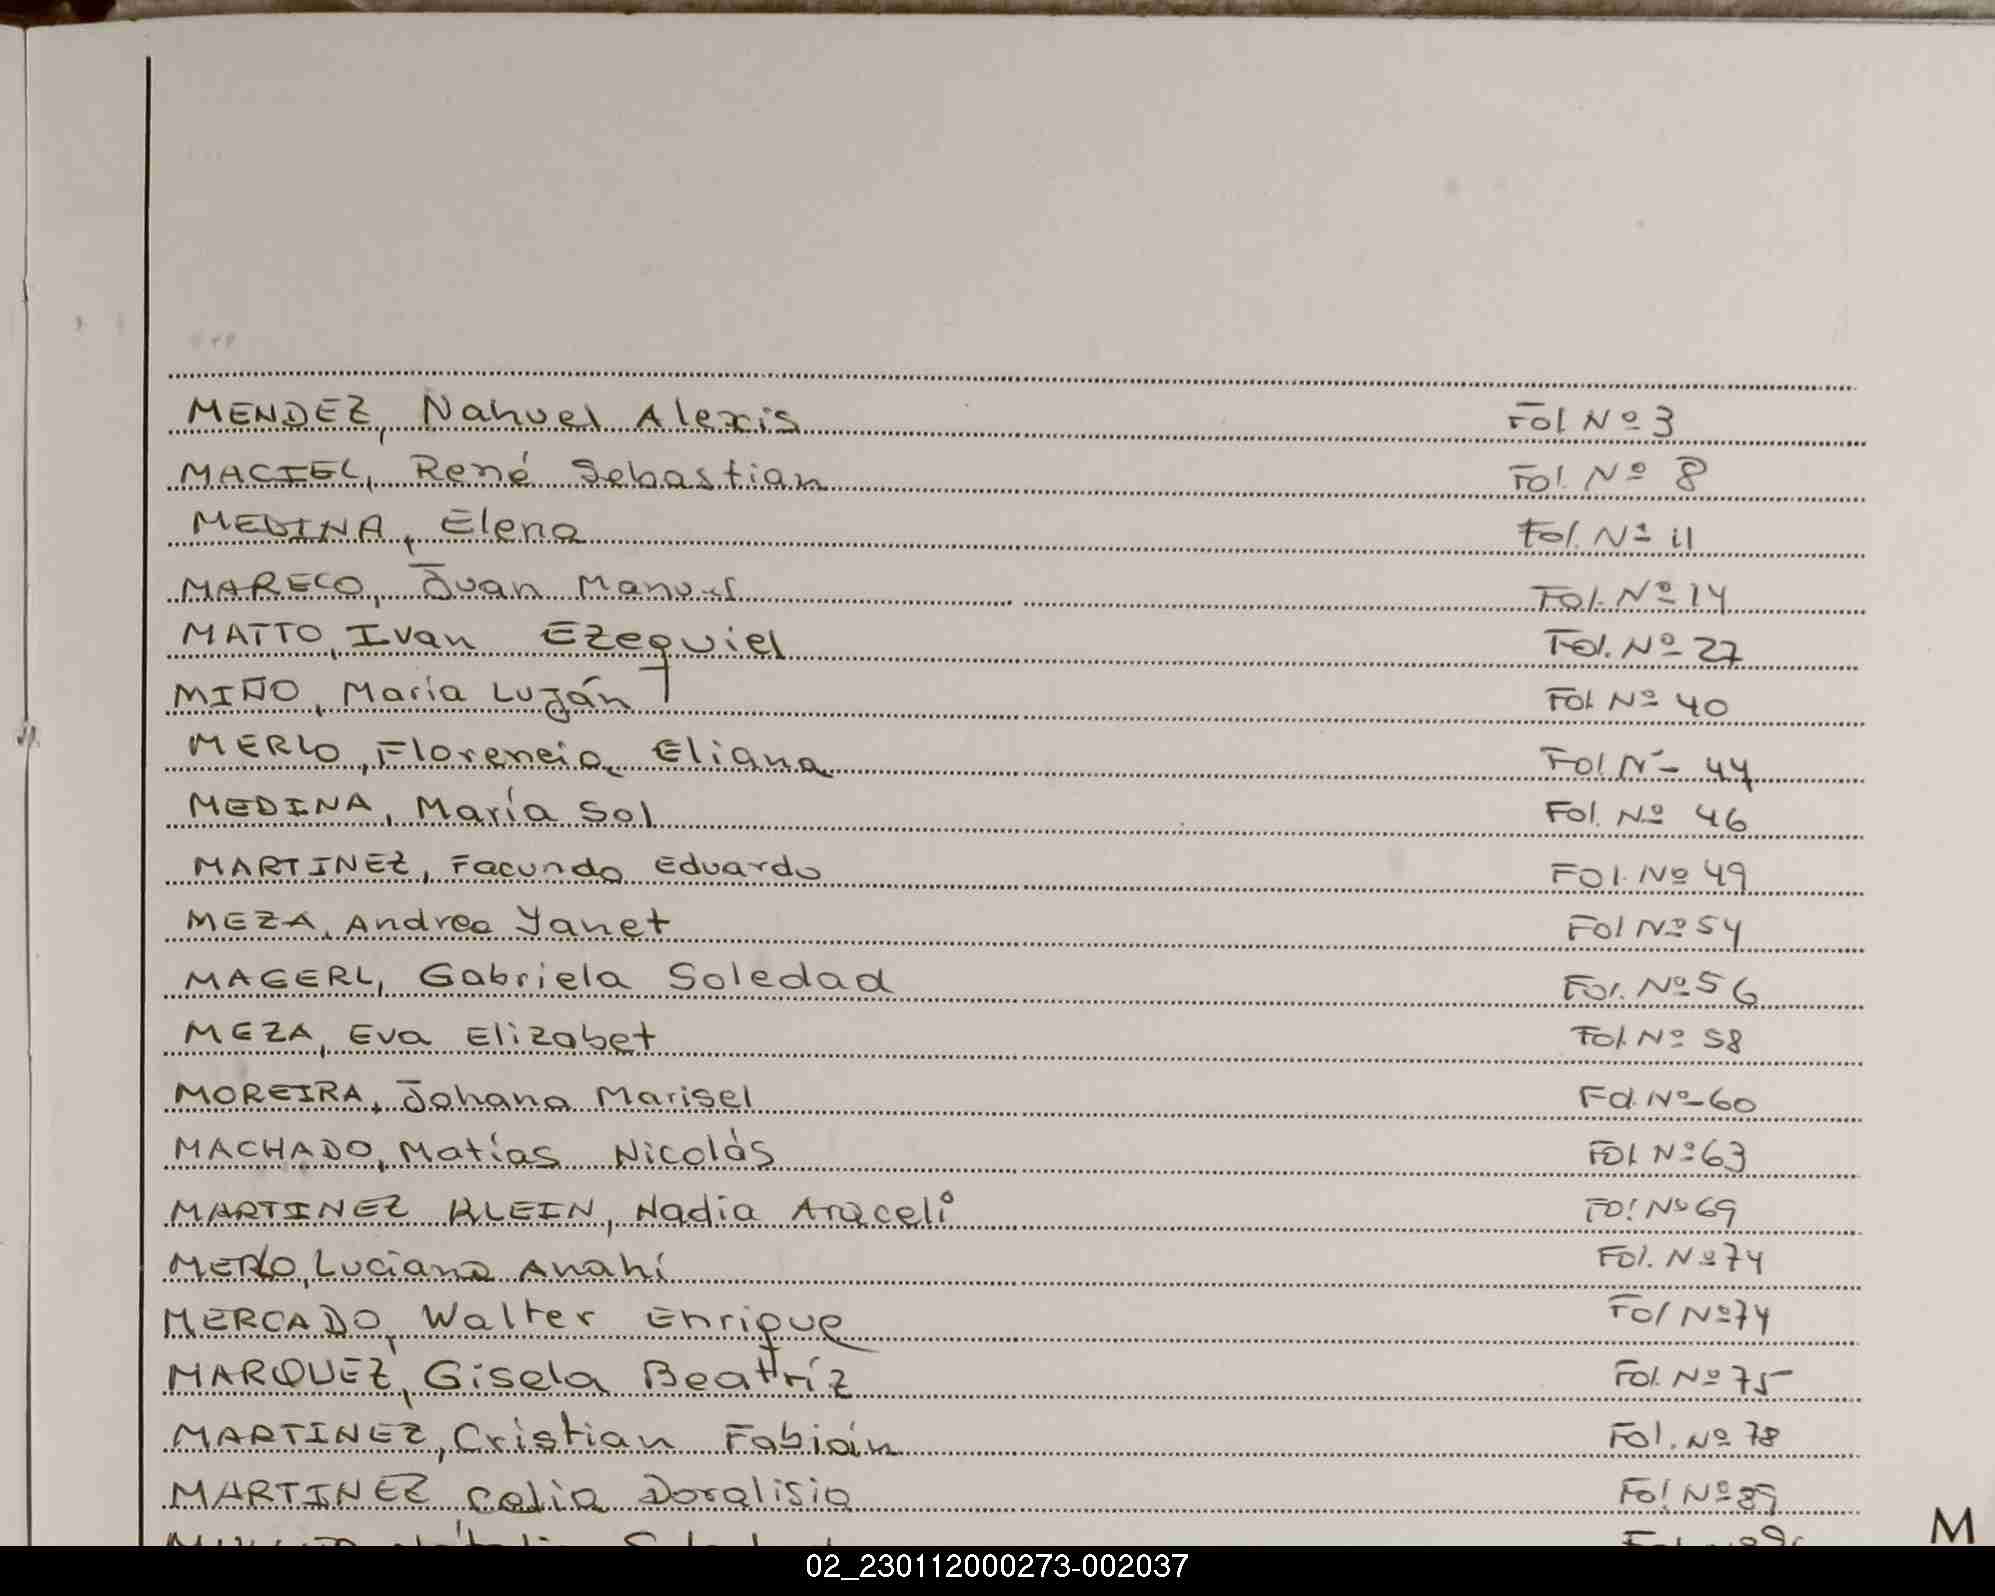 MENDEZ, Nahuel Alexis Fol Nº 3
MACIEL, René Sebastian Fol. Nº 8
MEDINA, Elena Fol. Nº 11
MARECO, Juan Manuel Fol. Nº 14
MATTO, Ivan Ezequiel Fol. Nº 27
MIÑO, María Luján Fol. Nº 40
MERLO, Florencia Eliana Fol Nº 44
MEDINA, María Sol Fol. Nº 46
MARTINEZ, Facundo Eduardo Fol. Nº 49
MEZA, Andrea Yanet Fol Nº 54
MAGERL, Gabriela Soledad Fol. Nº 56
MEZA, Eva Elizabet Fol. Nº 58
MOREIRA, Johana Marisel Fol. Nº 60
MACHADO, Matías Nicolás Fol. Nº 63
MARTINEZ KLEIN, Nadia Araceli Fol Nº 69
MERLO, Luciana Anahí Fol. Nº 74
MERCADO, Walter Enrique Fol Nº 74
MARQUEZ, Gisela Beatríz Fol. Nº 75
MARTINEZ, Cristian Fabián Fol. Nº 78
MARTINEZ Celia Doralisia Fol. Nº
M
02_230112000273-002037